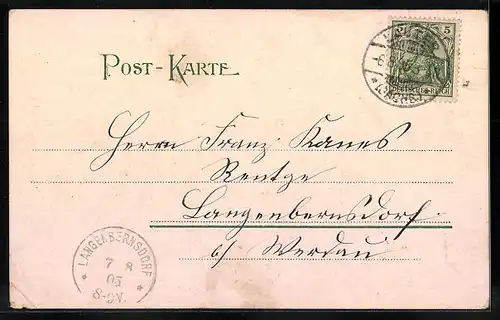 POST-KARTE
5
DEUTSCHES REICH
(SACHS.)
Herrn Franz Kanes
Rentge
Langenbernsdorf
b/ Werdau
LANGENBERNSDORF
7 8
05
8-9N.